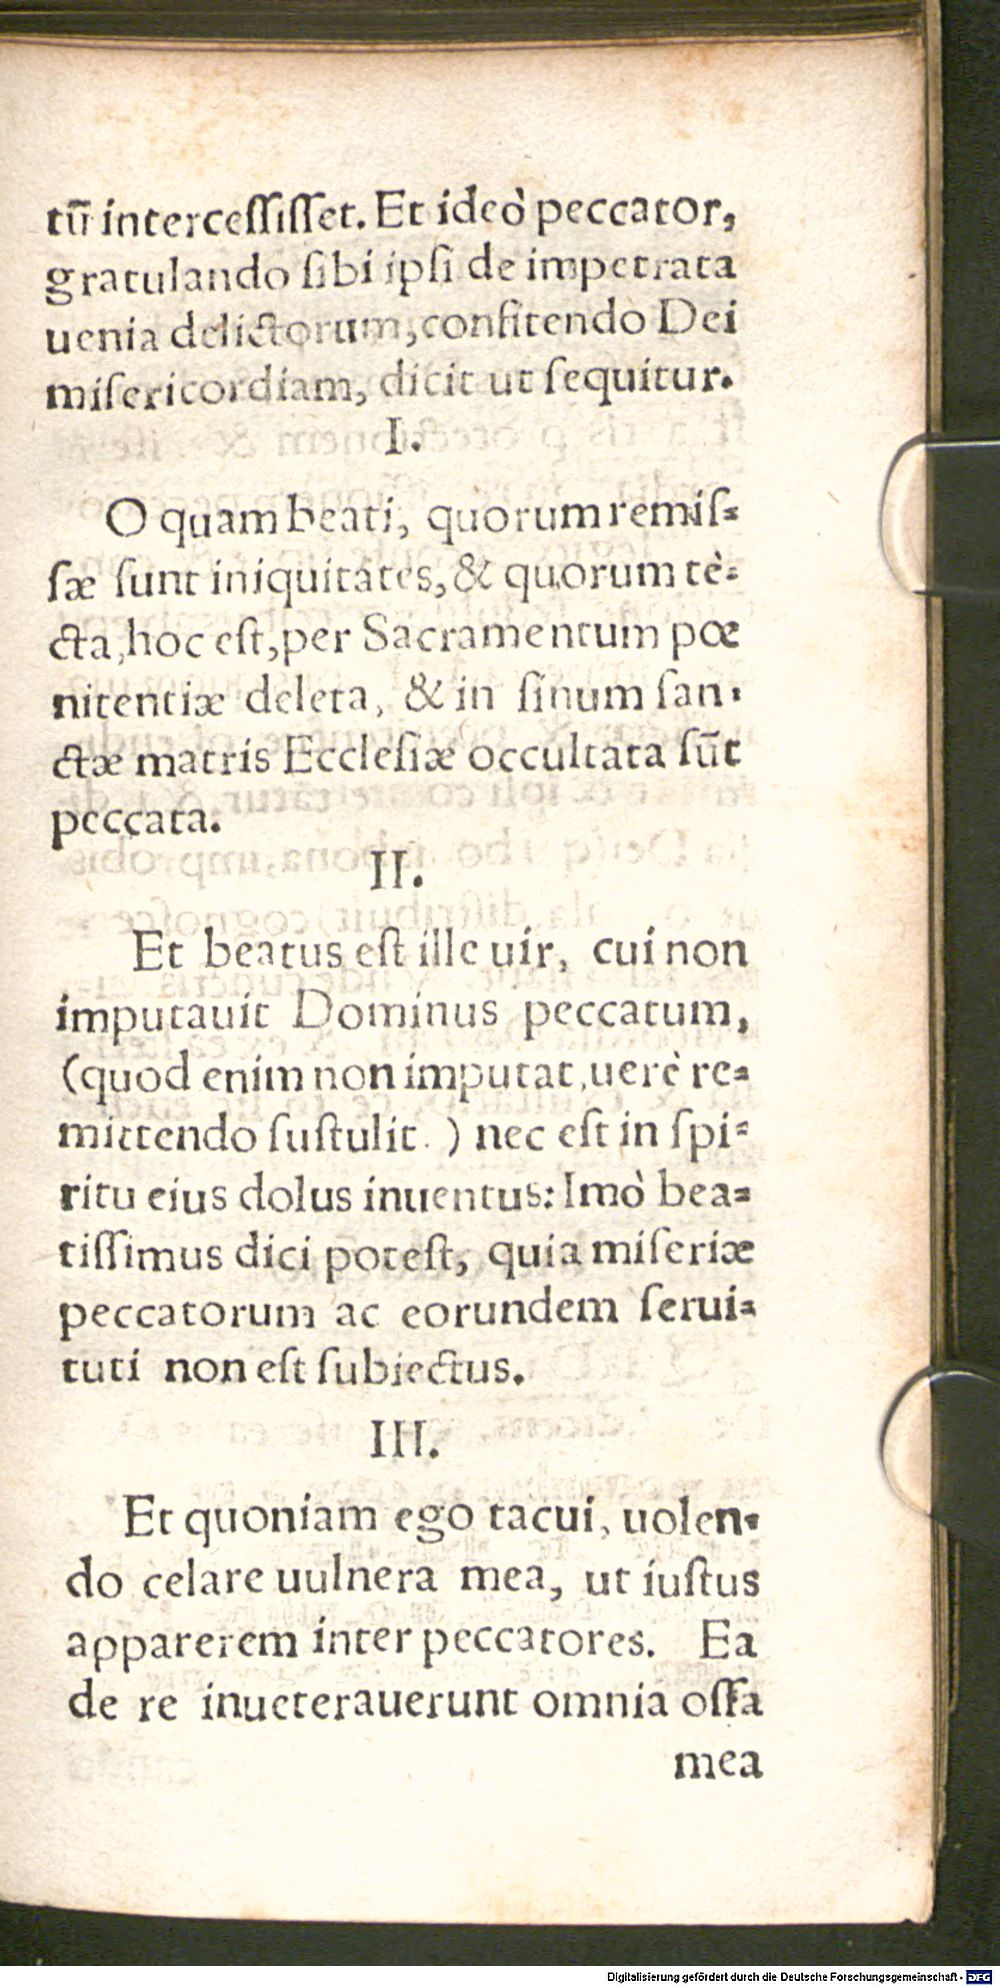 tū interceſſiſſet. Et ideò peccator,
gratulando ſibi ipſi de impetrata
uenia delictorum, confitendo Dei
miſericordiam, dicit ut ſequitur.
I.
O quam beati, quorum remiſ-
ſæ ſunt iniquitates, & quorum tè-
cta, hoc eſt, per Sacramentum pœ
nitentiæ deleta, & in ſinum ſan-
ctæ matris Eccleſiæ occultata ſūt
peccata.
II.
Et beatus eſt ille uir, cui non
imputauit Dominus peccatum,
(quod enim non imputat, uerè re-
mittendo ſuſtulit.) nec eſt in ſpi-
ritu eius dolus inuentus: Imò bea-
tiſſimus dici poteſt, quia miſeriæ
peccatorum ac eorundem ſerui-
tuti non eſt ſubiectus.
III.
Et quoniam ego tacui, uolen-
do celare uulnera mea, ut iuſtus
apparerem inter peccatores. Ea
de re inueterauerunt omnia oſſa
mea
Digitalisierung gefördert durch die Deutsche Forschungsgemeinschaft - DFG